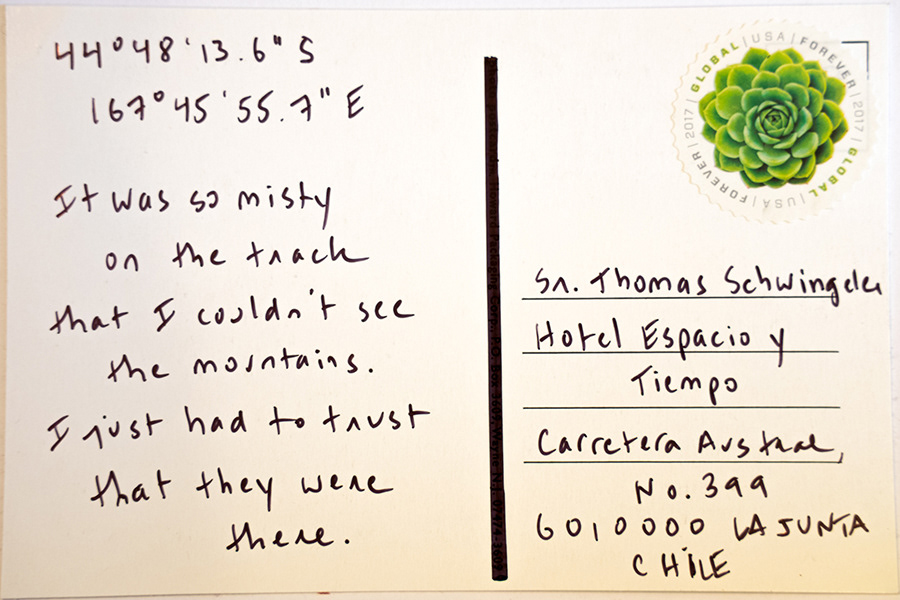 44°48'13.6" S
167°45'55.7" E
It was so misty
on the track
that I couldn't see
the mountains.
I just had to trust
that they were
there.
GLOBAL | USA | FOREVER | 2017 | GLOBAL | USA | FOREVER | 2017
Sr. Thomas Schwingeler
Hotel Espacio y
Tiempo
Carretera Austral,
No. 399
6010000 LA JUNTA
CHILE